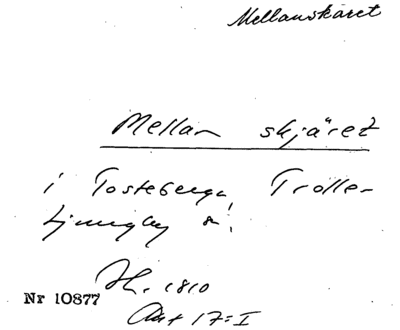 Mellanskäret
Mellan skjäret
i Tosteberga, Trolle-
Ljungby s.
Hl. 1810
Akt 17:I
Nr 10877